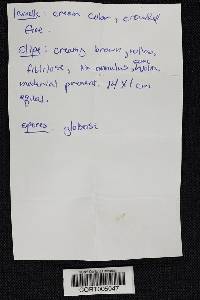 lamella cream color, crowded
fine.
stipe: creamy brown, hollow,
fibrillose, no annulus, some hyaline
material present. 14 X 1 cm
equal.
spores globose
CORT006047